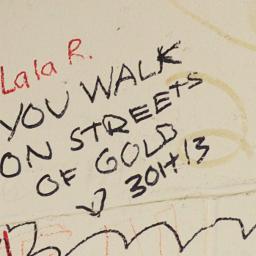 Lala R.
YOU WALK
ON STREETS
OF GOLD
301+13